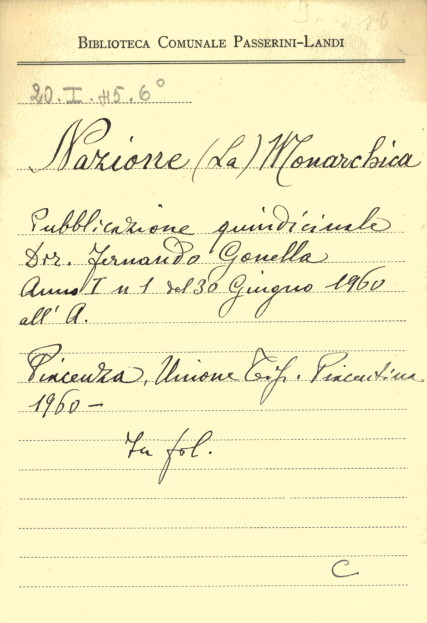 BIBLIOTECA COMUNALE PASSERINI-LANDI
20.I.45.6°
Nazione (La) Monarchica
Pubblicazione quindicinale
Dir. Fernando Gonella
Anno I n 1 del 30 Giugno 1960
all' A.
Piacenza, Unione Tip. Piacentina
1960 —
In fol.
C